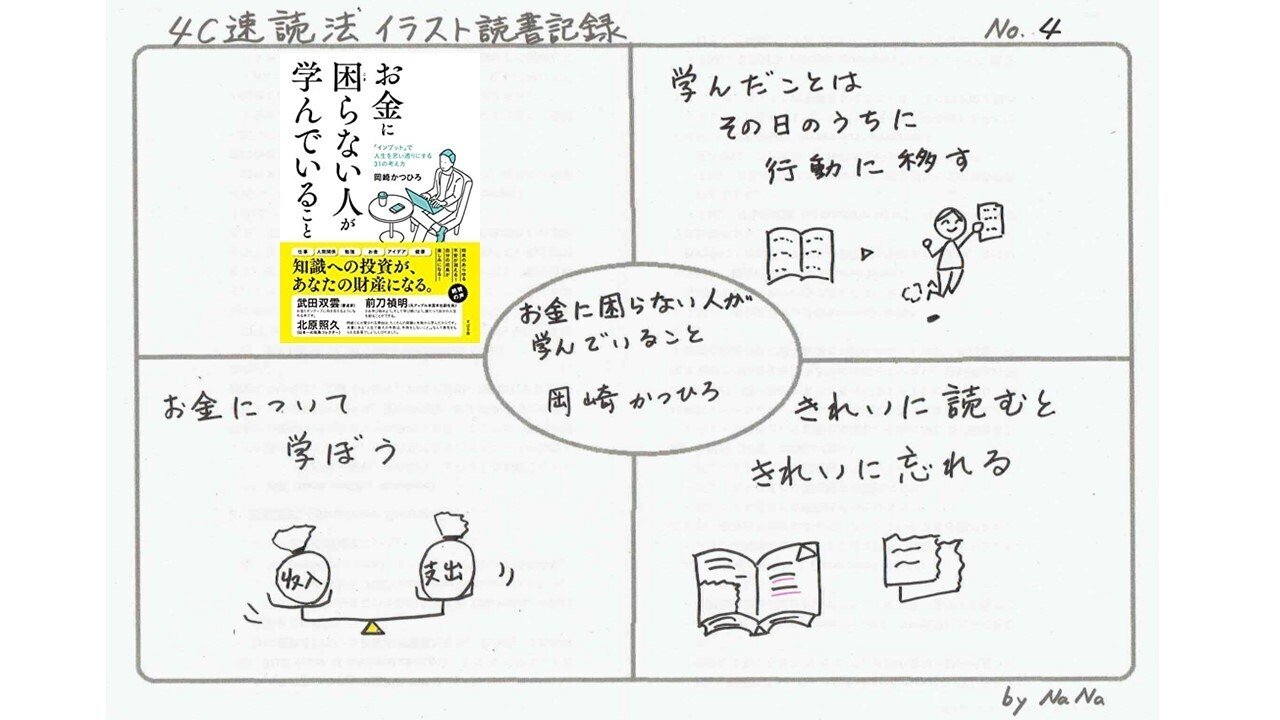 4C速読法 イラスト読書記録
No. 4
お金に
困らない人が
学んでいること
「インプット」で
人生を思い通りにする
31の考え方
岡崎かつひろ
仕事 人間関係 勉強 お金 アイデア 健康
知識への投資が、
あなたの財産になる。
武田双雲
前刀禎明
北原照久
学んだことは
その日のうちに
行動に移す
お金に困らない人が
学んでいること
岡崎かつひろ
お金について
学ぼう
収入
支出
きれいに読むと
きれいに忘れる
by NaNa